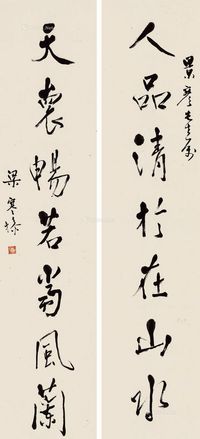 先生屬
人品清於在山水
天褱暢若當風蘭
梁寒操